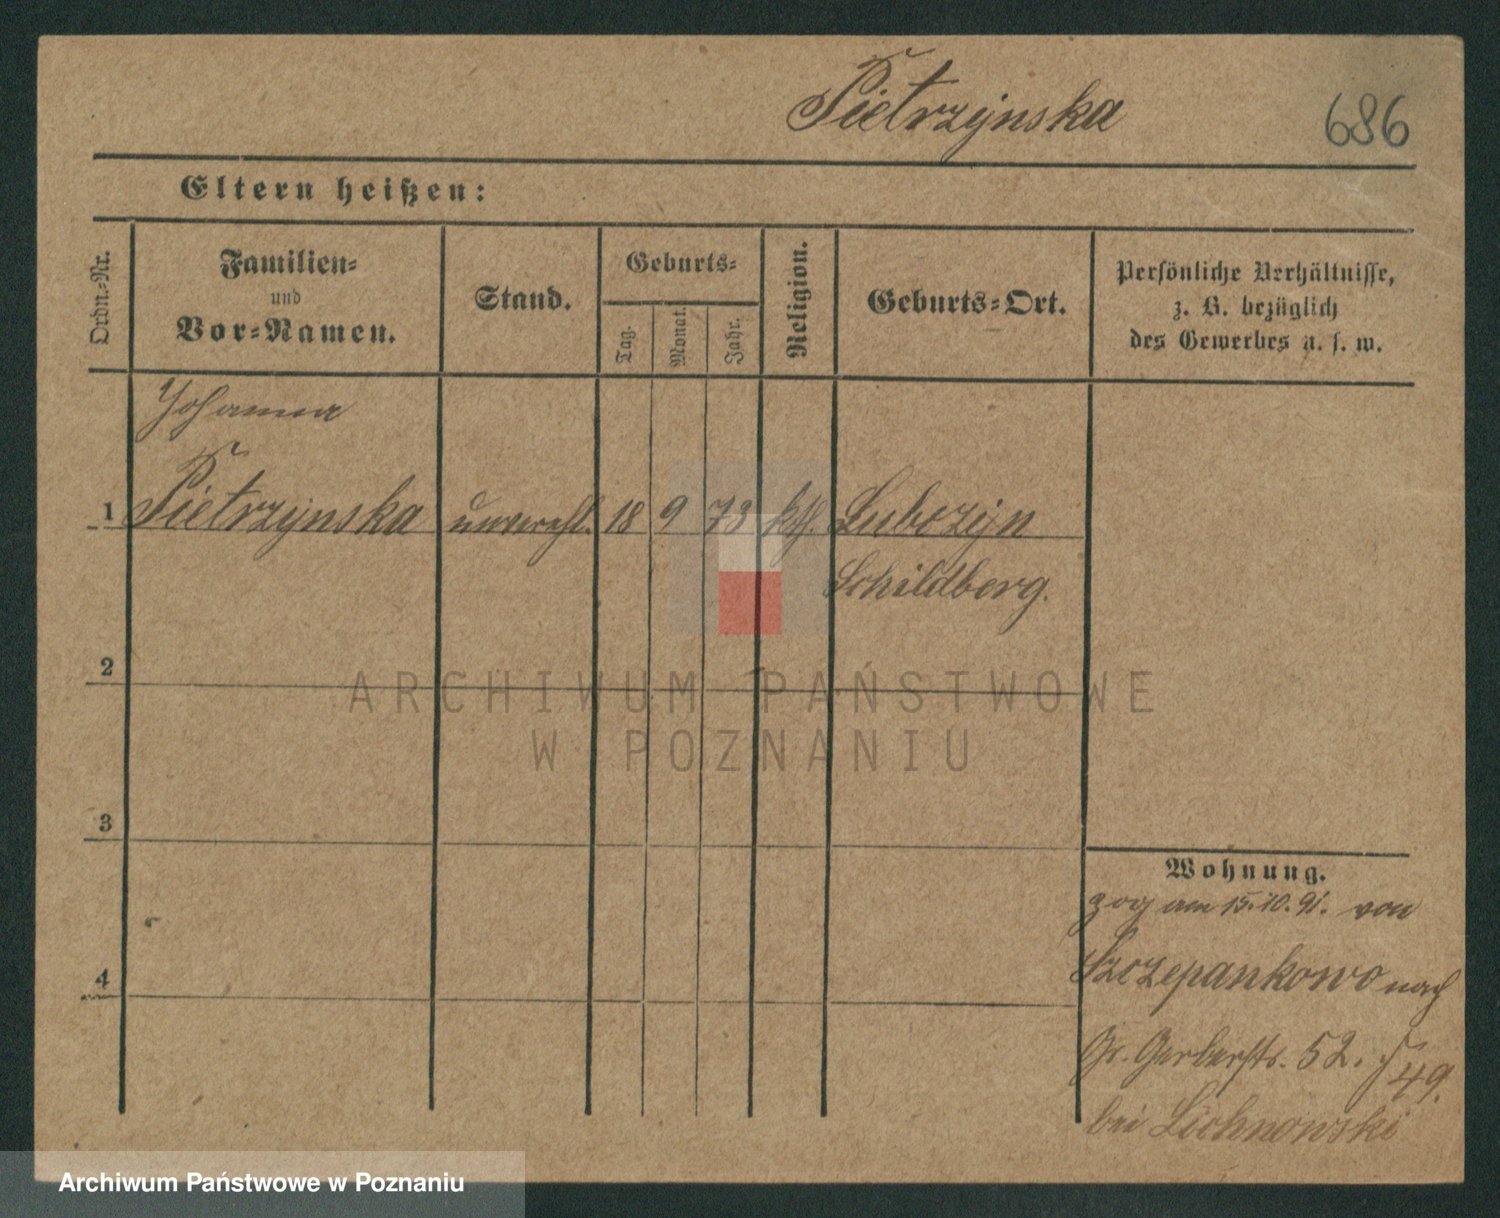 Pietrzynska
686
Eltern heißen:
Ordn.-Nr.
Familien-
und
Vor-Namen.
Stand.
Geburts-
Tag.
Monat.
Jahr.
Religion.
Geburts-Ort.
Persönliche Verhältnisse,
z. B. bezüglich
des Gewerbes u. s. w.
Johanna
1 Pietrzynska unverehl. 18 9 73 kth. Lubczyn
Schildberg.
2
3
4
Wohnung.
zog am 15.10.91. von
Szczepankowo nach
Gr. Gerberstr. 52. 49.
bei Lichnowski
ARCHIWUM PAŃSTWOWE
W POZNANIU
Archiwum Państwowe w Poznaniu